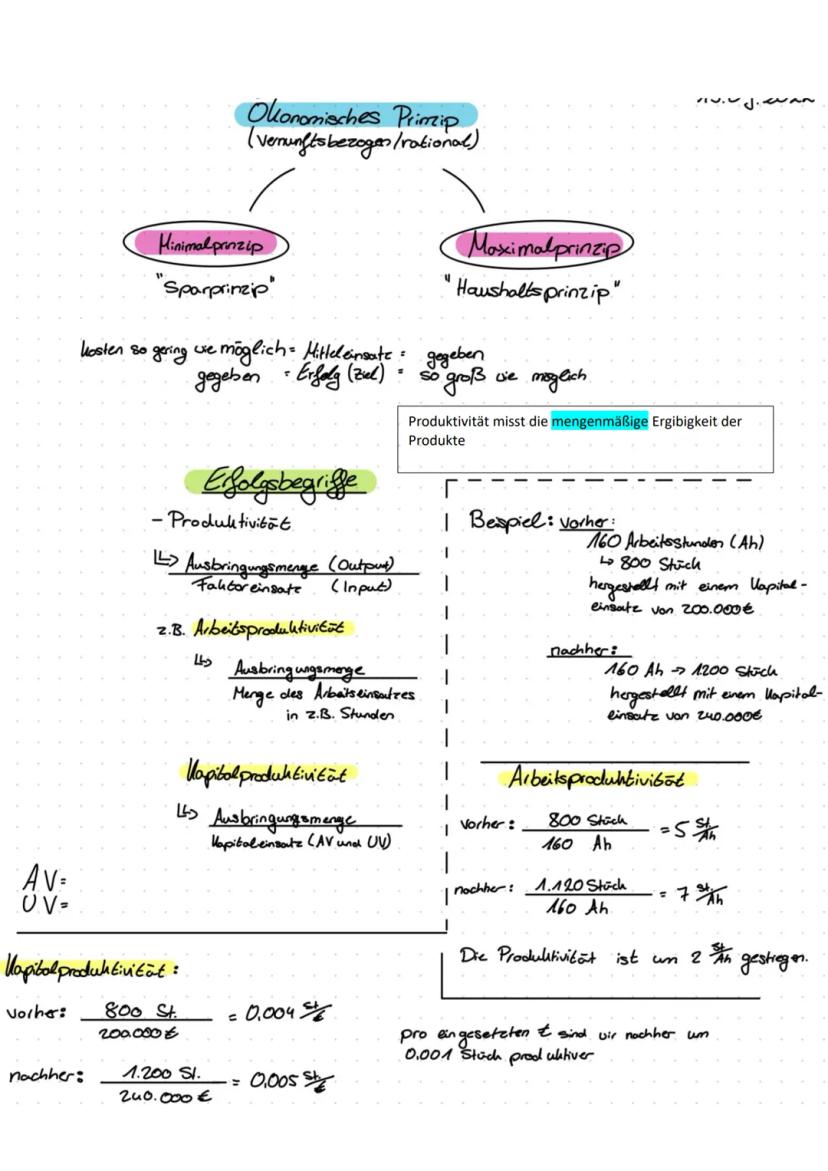 Ökonomisches Prinzip
(vernunftsbezogen/rational)
Minimalprinzip
Maximalprinzip
"Sparprinzip"
"Haushaltsprinzip"
kosten so gering wie möglich = Mitteleinsatz = gegeben
gegeben = Erfolg (Ziel) = so groß wie möglich
Produktivität misst die mengenmäßige Ergibigkeit der
Produkte
Erfolgsbegriffe
- Produktivität
↳ Ausbringungsmenge (Output)
Faktoreinsatz (Input)
z.B. Arbeitsproduktivität
↳ Ausbringungsmenge
Menge des Arbeitseinsatzes
in z.B. Stunden
Kapitalproduktivität
↳ Ausbringungsmenge
Kapitaleinsatz (AV und UV)
AV=
UV=
Bespiel: vorher:
160 Arbeitsstunden (Ah)
↳ 800 Stück
hergestellt mit einem Kapital-
einsatz von 200.000€
nachher:
160 Ah → 1200 Stück
hergestellt mit einem Kapital-
einsatz von 240.000€
Arbeitsproduktivität
vorher: 800 Stück = 5 St./Ah
160 Ah
nachher: 1.120 Stück = 7 St./Ah
160 Ah
Die Produktivität ist um 2 St./Ah gestiegen.
Kapitalproduktivität:
vorher: 800 St. = 0,004 St/€
200.000 €
nachher: 1.200 St. = 0,005 St/€
240.000 €
pro eingesetzten € sind wir nachher um
0,001 Stück produktiver